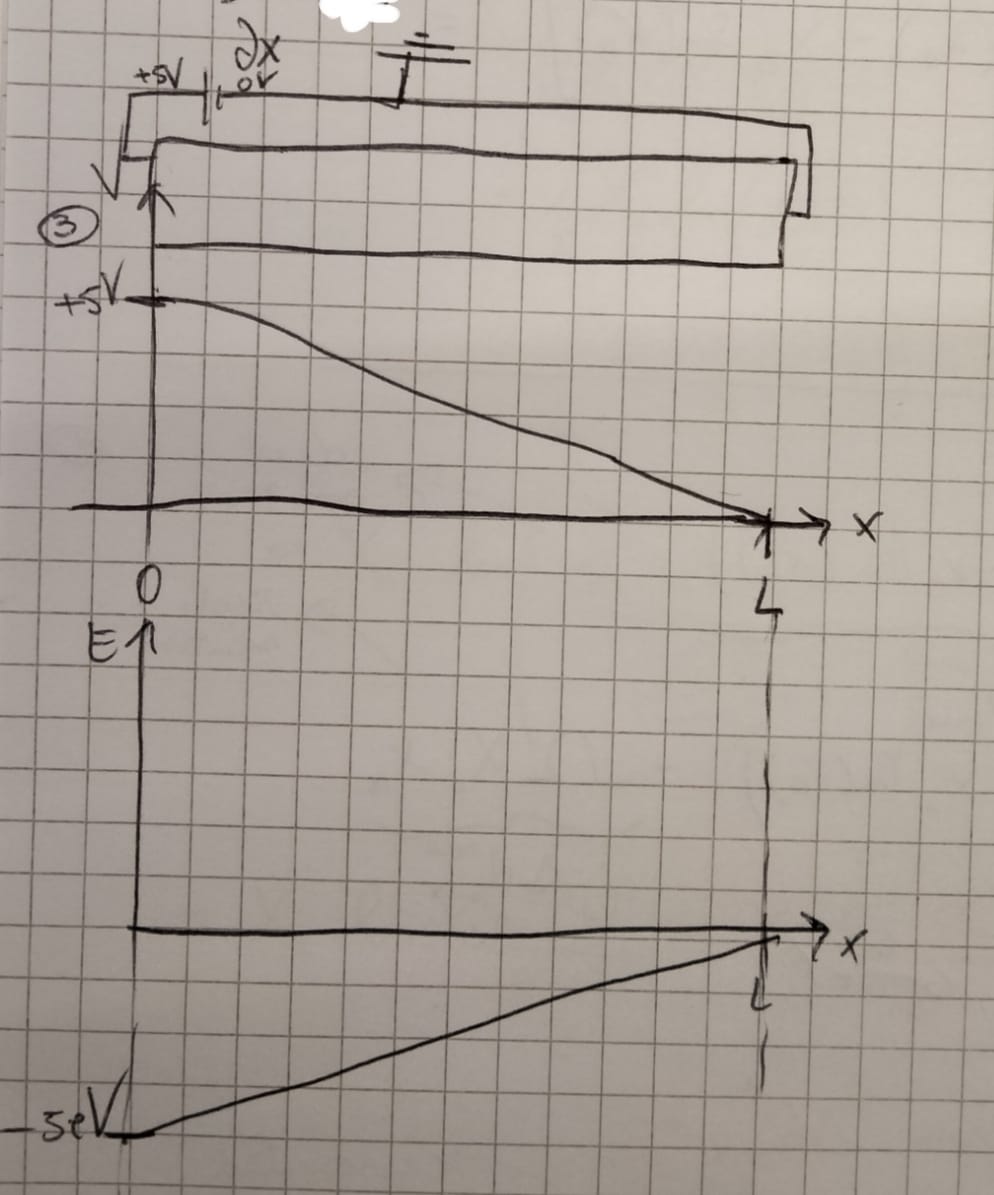 ∂x
+5V
0V
V
③
+5V
x
0
L
E
x
L
-5eV